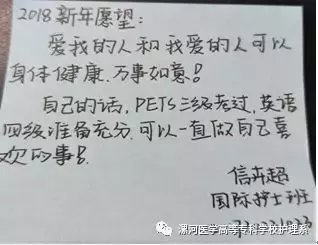 2018新年愿望:
爱我的人和我爱的人可以
身体健康.万事如意!
自己的话,PETS三级考过,英语
四级准备充分,可以一直做自己喜
欢的事!
信卉超
国际护士班
漯河医学高等专科学校护理系